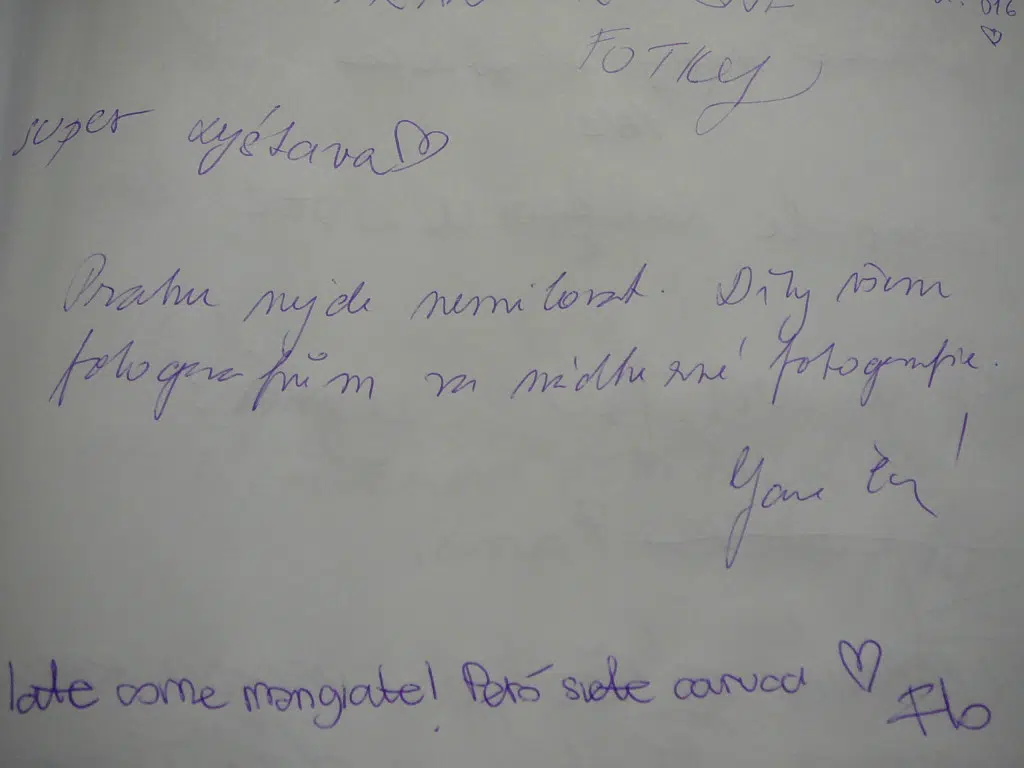 FOTKY
super výstava
Prahu nejde nemilovat. Díky všem
fotografům za nádherné fotografie.
come mangiate! Però siete carucci
Flo